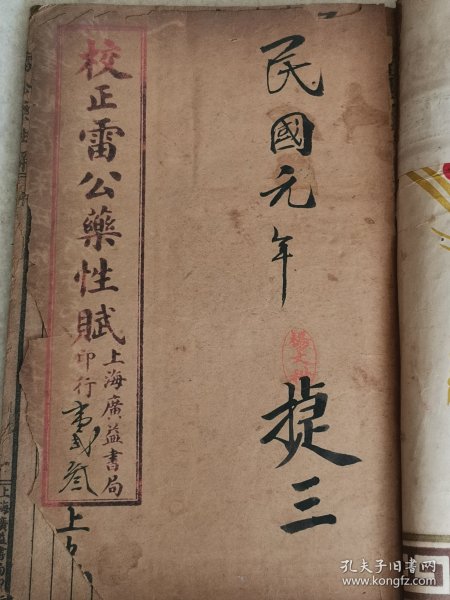 民國元年
捷三
校正雷公藥性賦
上海廣益書局
印行
貳叁
上
上海廣益書局
孔夫子旧书网
www.kongfz.com